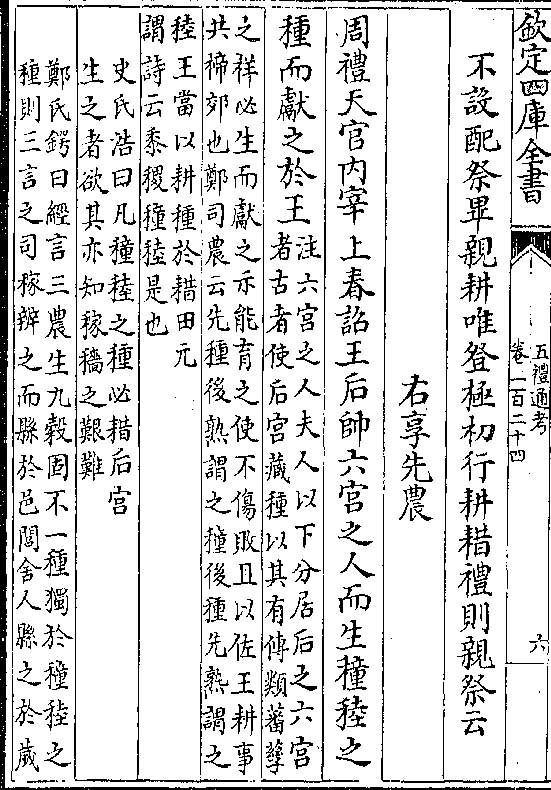 欽定四庫全書
五禮通考
卷一百二十四
六
不設配祭畢親耕唯登極初行耕耤禮則親祭云
右享先農
周禮天官内宰上春詔王后帥六宫之人而生穜稑之
種而獻之於王
注六宫之人夫人以下分居后之六宫
者古者使后宫藏種以其有傳類蕃孳
之祥必生而獻之示能育之使不傷敗且以佐王耕事
共禘郊也鄭司農云先種後熟謂之穜後種先熟謂之
稑王當以耕種於耤田元
謂詩云黍稷穜稑是也
史氏浩曰凡穜稑之種必耤后宫
生之者欲其亦知稼穡之艱難
鄭氏鍔曰經言三農生九穀固不一種獨於穜稑之
種則三言之司稼辨之而縣於邑閭舍人縣之於歲